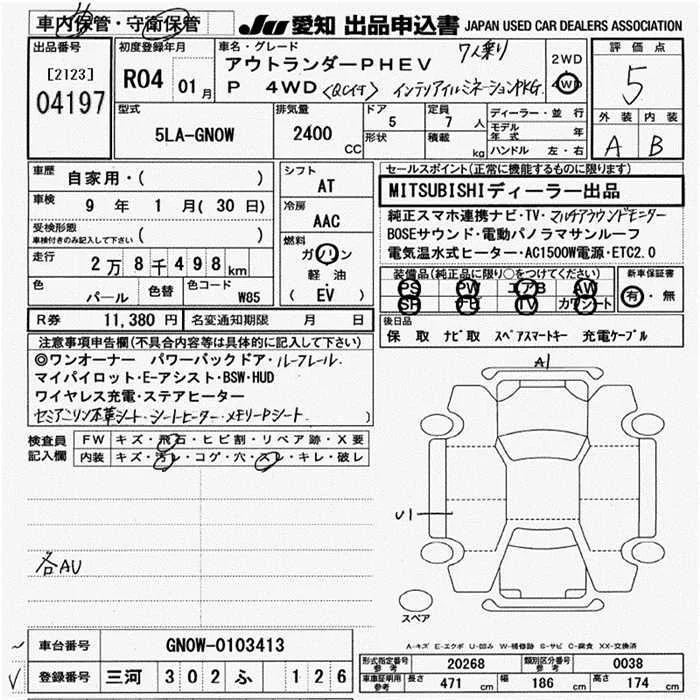 車内保管・守衛保管
JU 愛知 出品申込書 JAPAN USED CAR DEALERS ASSOCIATION
出品番号
[2123]
04197
初度登録年月
R04 01月
車名・グレード
7人乗り
アウトランダーPHEV
P 4WD <QC付> インテリアイルミネーションPKG.
2WD
4WD
評価点
5
外装 内装
A B
型式
5LA-GNOW
排気量
2400 CC
ドア
5
形状
定員
7 人
積載
kg
ディーラー・並行
モデル年式 年
ハンドル 左・右
車歴
自家用・( )
車検
9 年 1 月( 30 日)
受検形態
車検付きのみ記入して下さい ( )
走行
2万8千498km
色
パール
色替
色コード
W85
シフト
AT
冷房
AAC
燃料
ガソリン
軽油
( EV )
R券 11,380 円 名変通知期限 月 日
セールスポイント(正常に機能するものに限ります)
MITSUBISHIディーラー出品
純正スマホ連携ナビ・TV・マルチアラウンドモニター
BOSEサウンド・電動パノラマサンルーフ
電気温水式ヒーター・AC1500W電源・ETC2.0
装備品(純正品に限り○をつけてください)
PS PW エアB AW
SR ナビ TV カワシート
新車保証書
有・無
後日品
保 取 ナビ取 スペアスマートキー 充電ケーブル
注意事項申告欄(不具合内容等は具体的に記入して下さい)
◎ワンオーナー パワーバックドア・ルーフレール.
マイパイロット・E-アシスト・BSW・HUD
ワイヤレス充電・ステアヒーター
セミアニリン本革シート・シートヒーター・メモリーPシート
検査員記入欄
FW キズ・飛石・ヒビ割・リペア跡・X要
内装 キズ・汚レ・コゲ・穴・スレ・キレ・破レ
各AU
A1
U1
スペア
A-キズ E-エクボ U-凹み W-補修跡 S-サビ C-腐食 XX-交換済
車台番号 GNOW-0103413
登録番号 三河 302 ふ 126
型式指定番号 参考 20268 類別区分番号 参考 0038
車庫証明用 参考 長さ 471 cm 幅 186 cm 高さ 174 cm